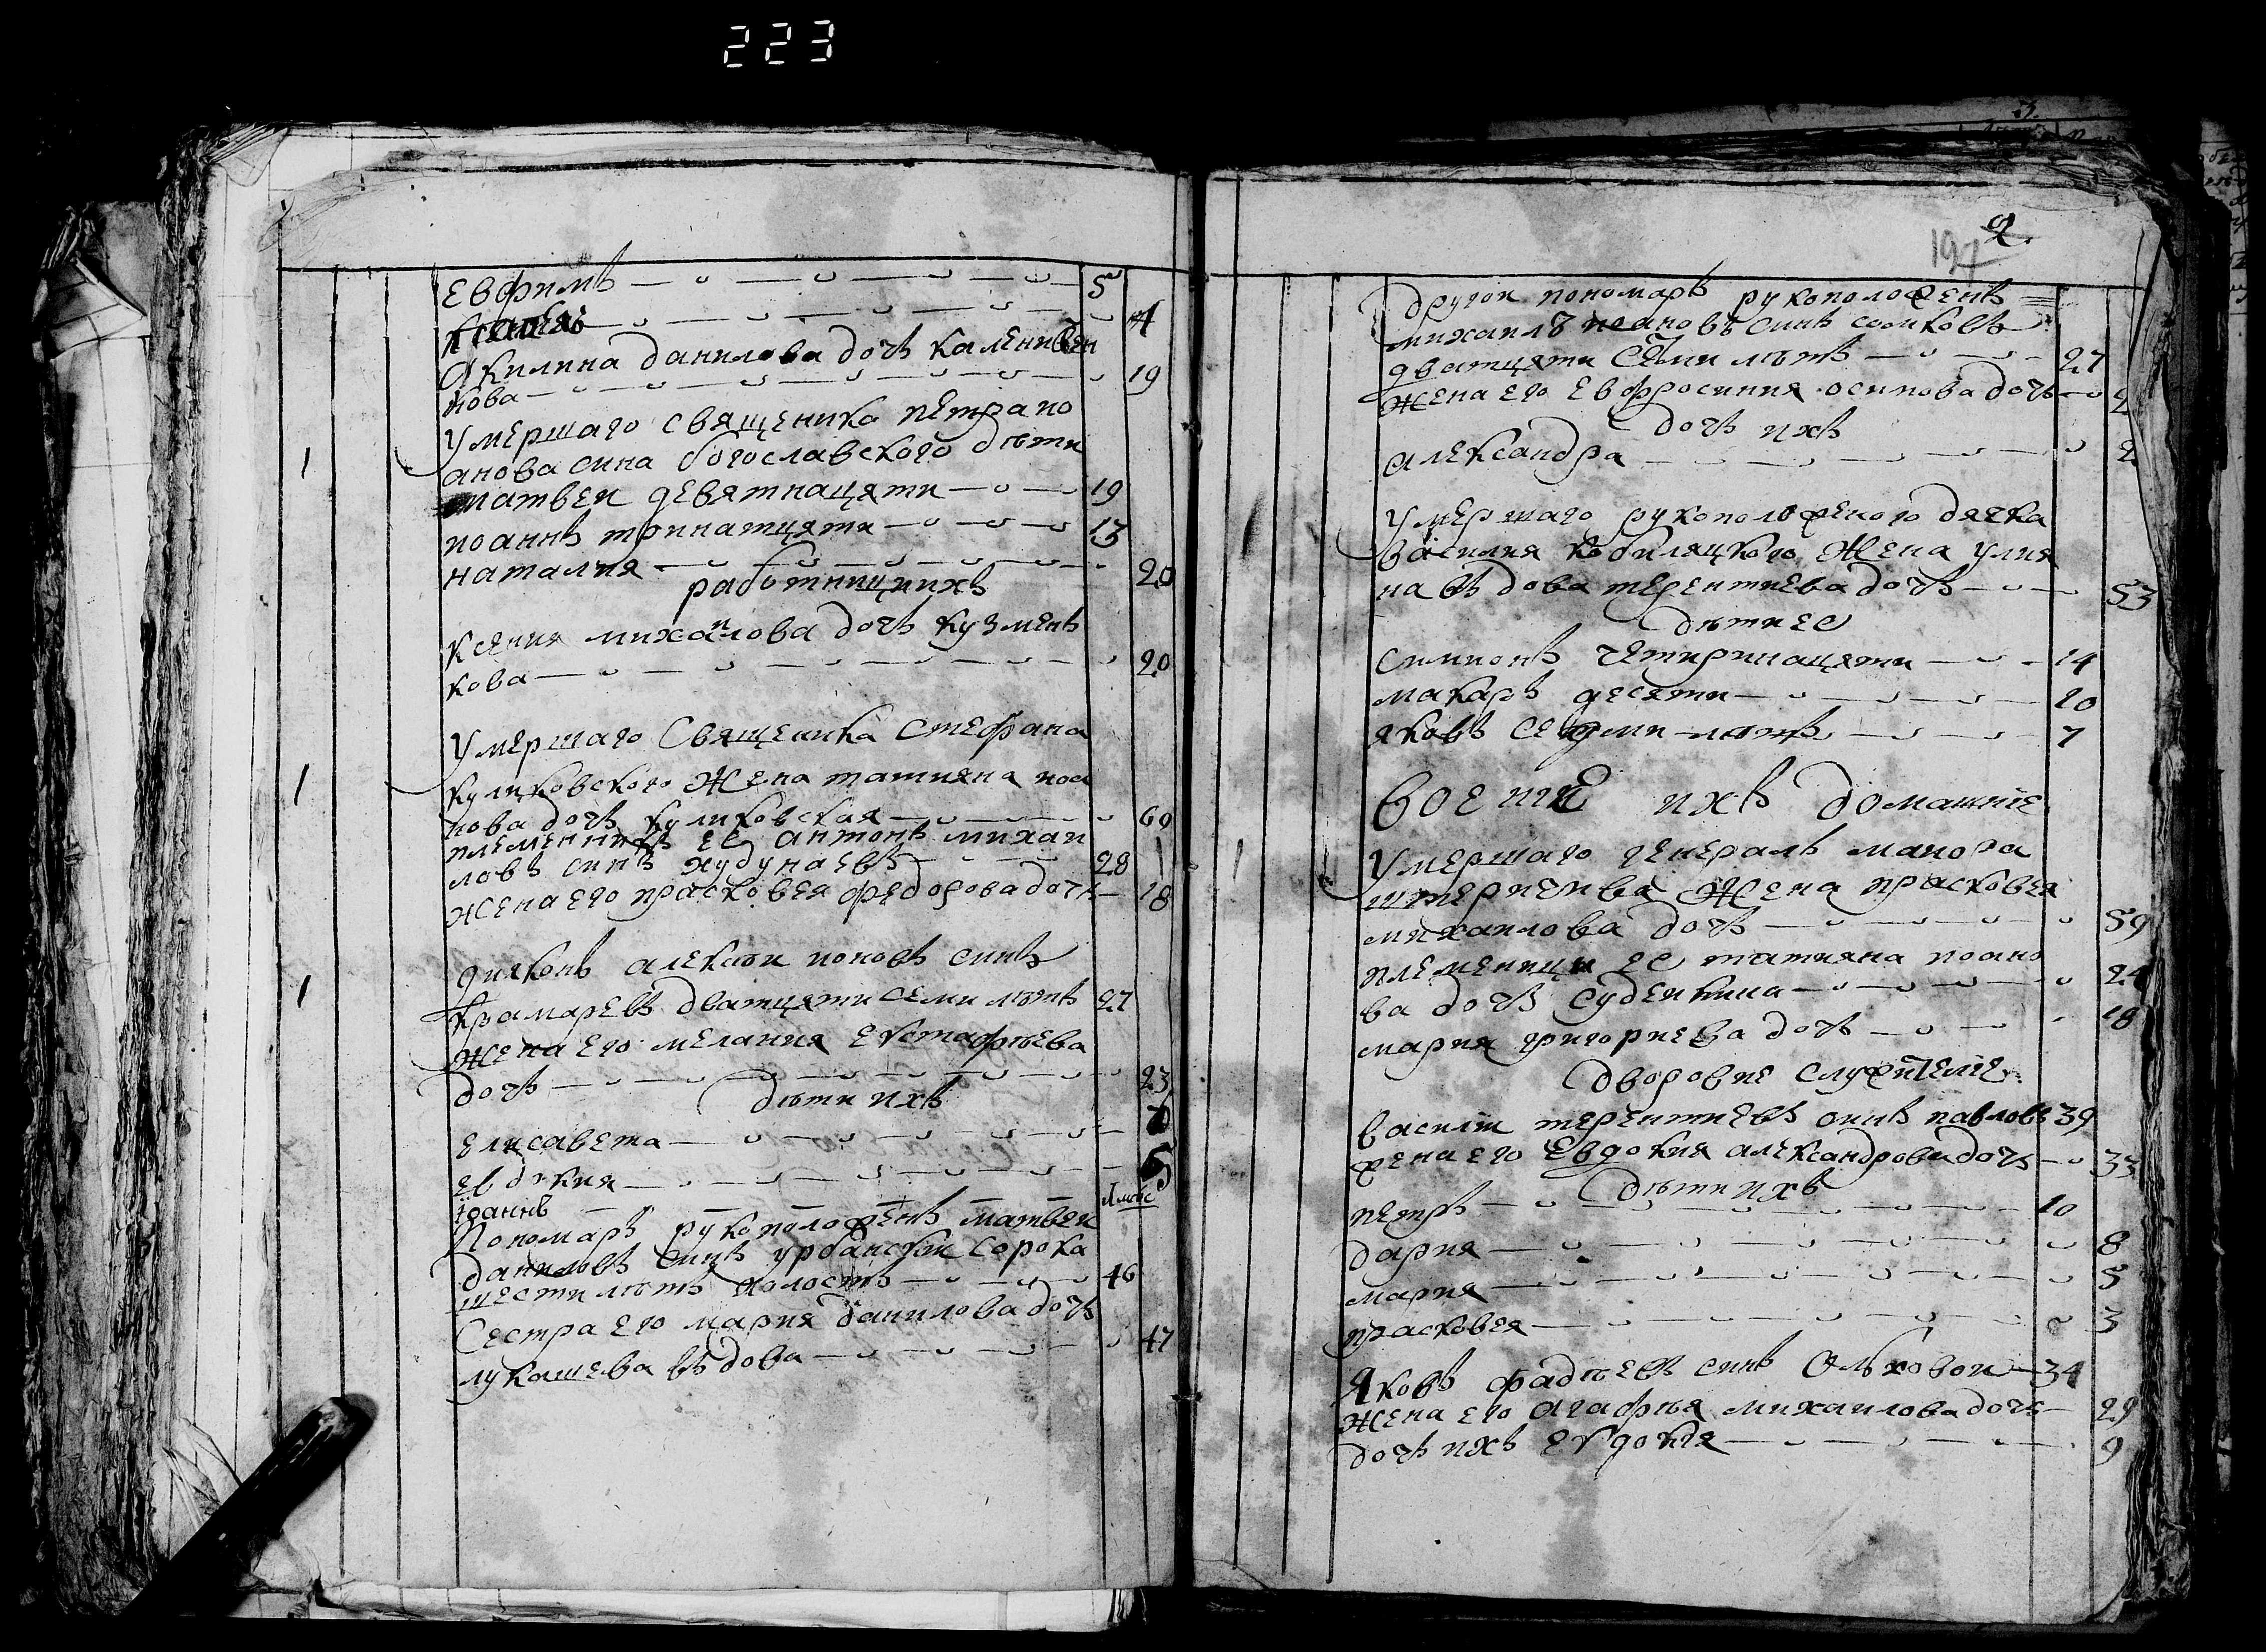 223
Евфимъ 5
4
Акилина данилова дочъ каменивен
кова 19
Умершаго священика петра ио
1 анова сина богославского дѣти
матвеи девятнацяти 19
иоаннъ тринатцяти 13
наталия 20
работници ихъ
ксения михаилова дочъ кузменъ
кова 20
Умершаго Священика Стефана
1 куликовского Жена татияна иоа
нова дочъ куликовская 69
племенникъ ее антонъ михаи
ловъ синъ худунаевъ 28
жена его прасковея федорова дочъ 18
дияконъ алексѣи ионовъ синъ
1 Крамаревъ дватцяти семи лѣтъ 27
Жена его мелания евстафѣева
дочъ 23
дѣти ихъ
елисавета
евдокия 5
іоаннъ
Пономаръ рукоположенъ матвеи
даниловъ синъ урбански сорока
шести лѣтъ холостъ 46
Сестра его мария данилова дочъ
лукашева въдова 47
2.
197
другои пономаръ рукоположенъ
михаилъ иоановъ синъ
дватцяти семи лѣтъ 27
Жена его Евфросиния осипова дочъ 2
дочъ ихъ
александра 2
Умершаго рукоположеного дячка
1 василия кобиляцкого Жена улия
на въдова терентиева дочъ 53
дѣти ее
симионъ четиринацяти 14
макаръ десяти 10
яковъ седми лѣтъ 7
Воение ихъ домашние
1 Умершаго генералъ маиора
штеричева Жена прасковея
михаилова дочъ 59
племеници ее татияна иоано
ва дочъ Суденкина 24
мария григориева дочъ 18
дворовие служителіе
василіи терентиевъ синъ павловъ 39
жена его Евдокия александрова дочъ 33
дѣти ихъ
петръ 10
дария 8
мария 5
прасковея 3
Яковъ фадѣевъ синъ Олховои 34
Жена его агафия михаилова дочъ 29
дочъ ихъ евдокія 9